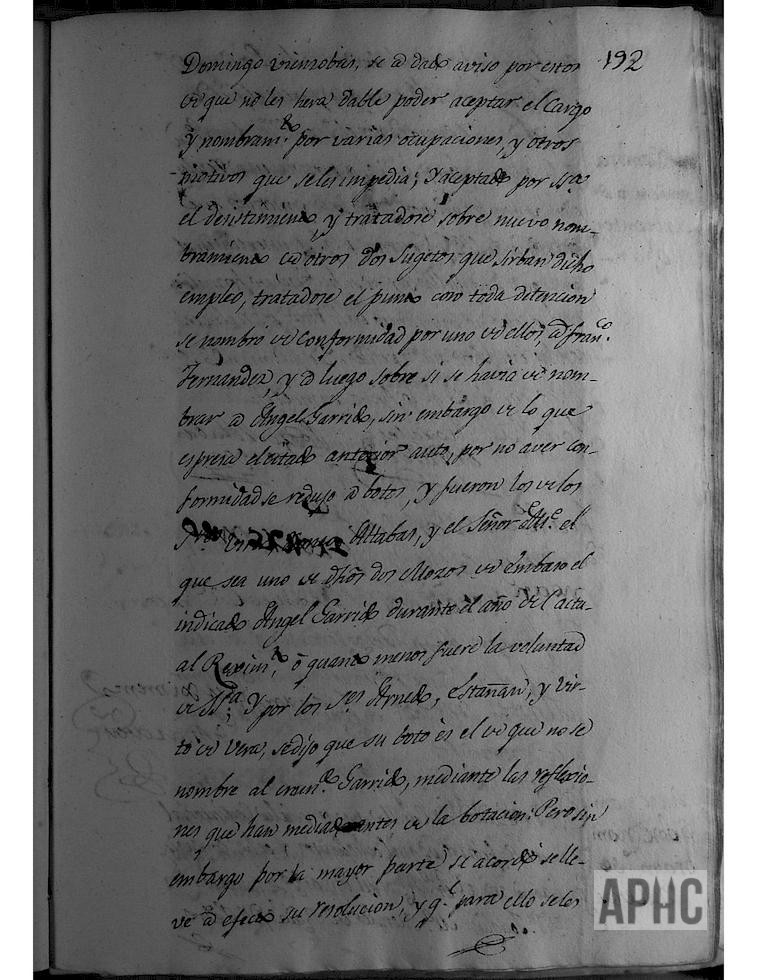 192
Domingo Viensobas, se a dado aviso por estos
de que no les hera dable poder aceptar el cargo
y nombram.to por varias ocupaciones, y otros
motivos que se les impedia; Y aceptado por Ssa
el desistimiento, y tratadose sobre nuevo nom-
bramiento de otros dos sugetos que sirban dicho
empleo, tratadose el punto con toda detencion
se nombró de conformidad por uno de ellos, a Fran.co
Fernandez, y a luego sobre si se havia de nom-
brar a Angel Garrido, sin embargo de lo que
espresa el citado anterior auto, por no aver con-
formidad se redujo a botos, y fueron los de los
Altabas, y el Señor Alc.e el
que sea uno de dhos dos Mozos de Embaso el
indicado Angel Garrido durante el año del actu-
al Reximto, ó quanto menos fuere la voluntad
de Ssa; Y por los S.res Arnedo, Estañan, y Vir-
to de Vera, se dijo que su boto és el de que no se
nombre al enun.do Garrido, mediante las reflexio-
nes que han mediado antes de la botacion: Pero sin
embargo por la mayor parte se acordó se lle-
ve a efecto su resolucion, y q.e para ello se les
APHC